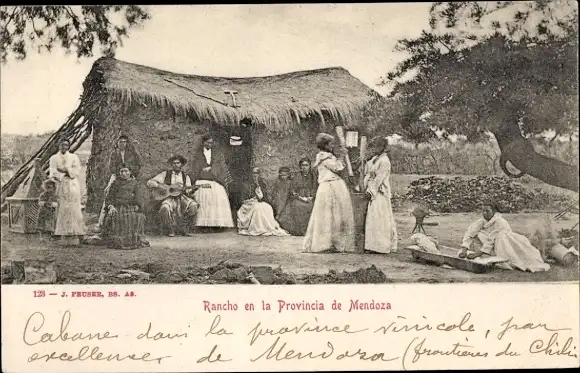 123 — J. PEUSER, BS. AS.
Rancho en la Provincia de Mendoza
Cabane dans la province vinicole, par
excellence de Mendoza (frontières du Chili